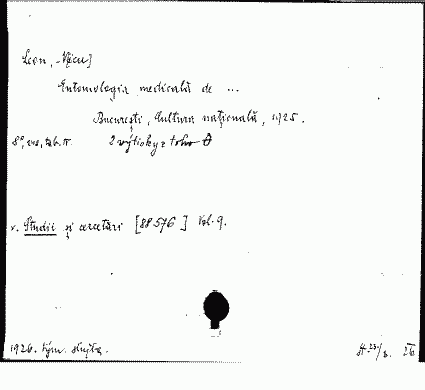 Leon, Nicu]
Entomologia medicală de ...
București, Cultura națională, 1925.
8°, 2 výtisky z toho
v. Studii și cercetări [88576] Vol. 9.
1926.
H. 23/3. 26